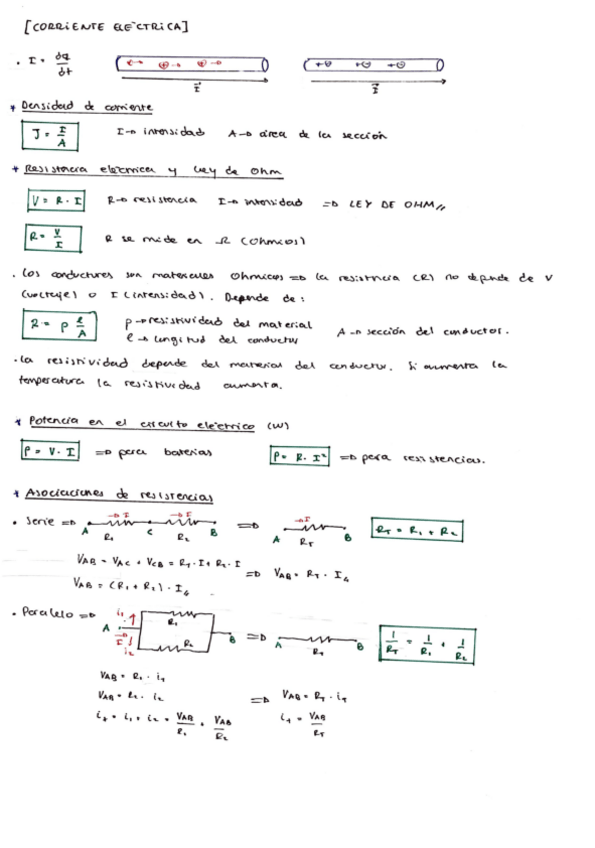 [CORRIENTE ELÉCTRICA]
. I = dq/dt
I⃗ I⃗
* Densidad de corriente
J = I/A I → intensidad A → área de la sección
* Resistencia eléctrica y Ley de Ohm
V = R · I R → resistencia I → intensidad => LEY DE OHM //
R = V/I R se mide en Ω (ohmios)
. Los conductores son materiales ohmicos => la resistencia (R) no depende de V
(voltaje) o I (intensidad). Depende de:
R = ρ l/A ρ → resistividad del material A → sección del conductor.
l → longitud del conductor
. La resistividad depende del material del conductor. Si aumenta la
temperatura la resistividad aumenta.
* Potencia en el circuito eléctrico (W)
P = V · I => para baterías P = R · I² => para resistencias.
* Asociaciones de resistencias
. Serie => A R₁ C R₂ B => A R_T B R_T = R₁ + R₂
→ I → I → I
V_AB = V_AC + V_CB = R₁ · I + R₂ · I => V_AB = R_T · I
V_AB = (R₁ + R₂) · I
. Paralelo => A i₁ I i₂ R₁ R₂ B => A R_T B 1/R_T = 1/R₁ + 1/R₂
V_AB = R₁ · i₁
V_AB = R₂ · i₂ => V_AB = R_T · i_T
i_T = i₁ + i₂ = V_AB/R₁ + V_AB/R₂ i_T = V_AB/R_T